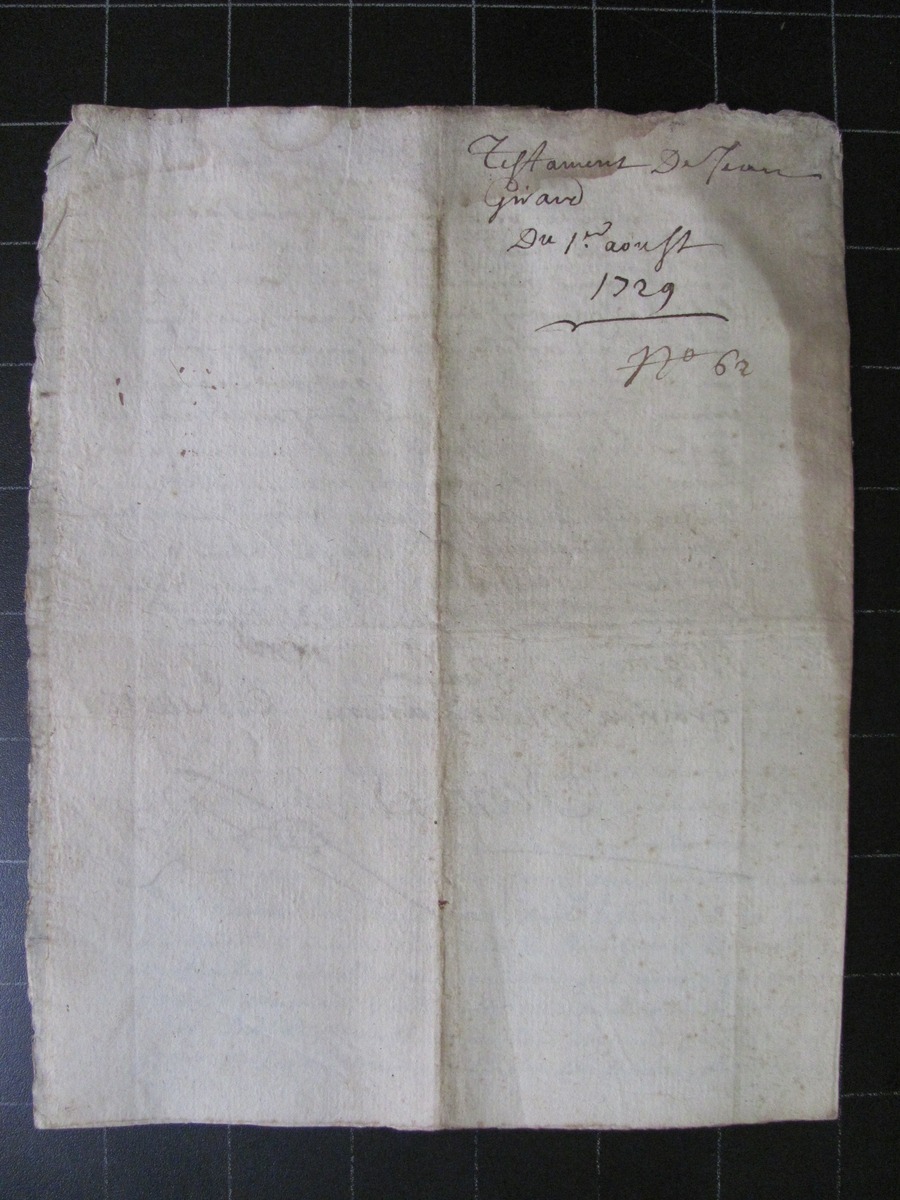 Testament De Jean
Girard
Du 1.er aoust
1729
No 62